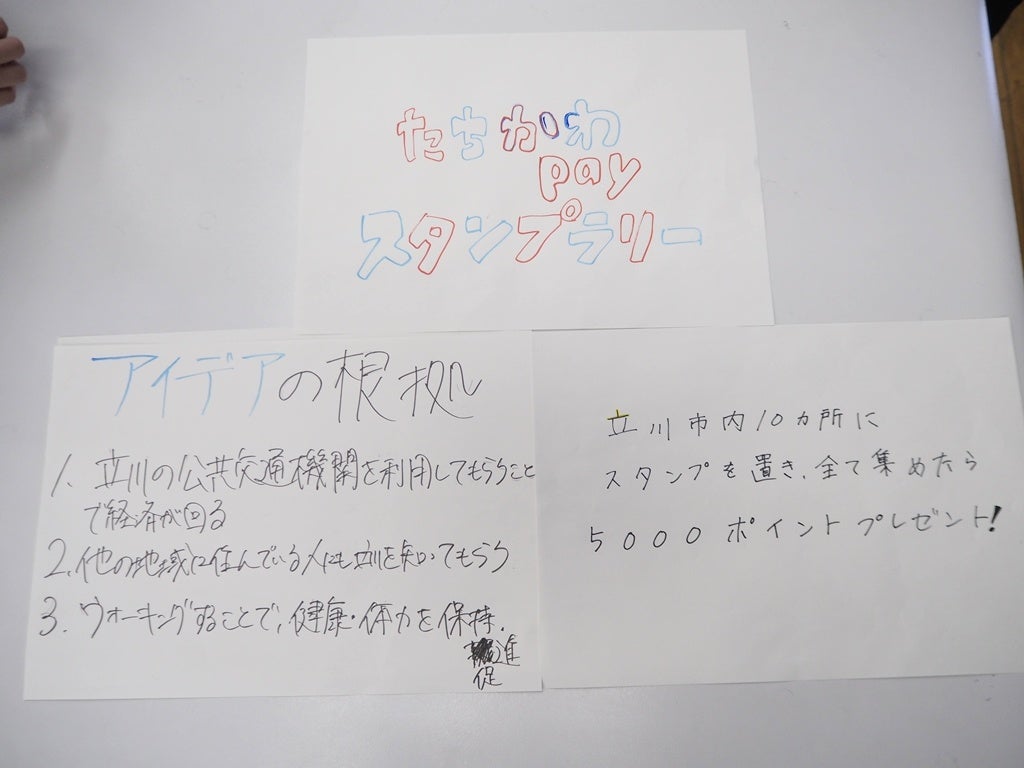 たちかわ
pay
スタンプラリー
アイデアの根拠
1. 立川の公共交通機関を利用してもらうこと
で経済が回る
2. 他の地域に住んでいる人にも立川を知ってもらう
3. ウォーキングすることで、健康・体力を保持、
進
促
立川市内10カ所に
スタンプを置き、全て集めたら
5000ポイントプレゼント!